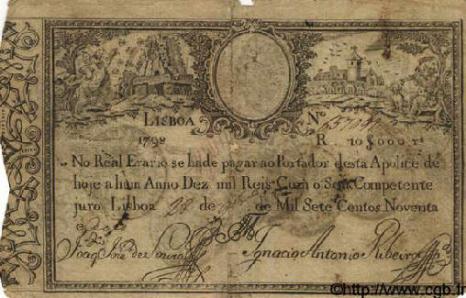 LISBOA Nº
1798 R. 10$000 rs
No Real Erario se hade pagar ao Portador desta Apolice de
hoje a hum Anno Dez mil Reis Com o Seu Competente
juro Lisboa 22 de de Mil Sete Centos Noventa
Ignacio Antonio Ribeiro
©http://www.cgb.fr